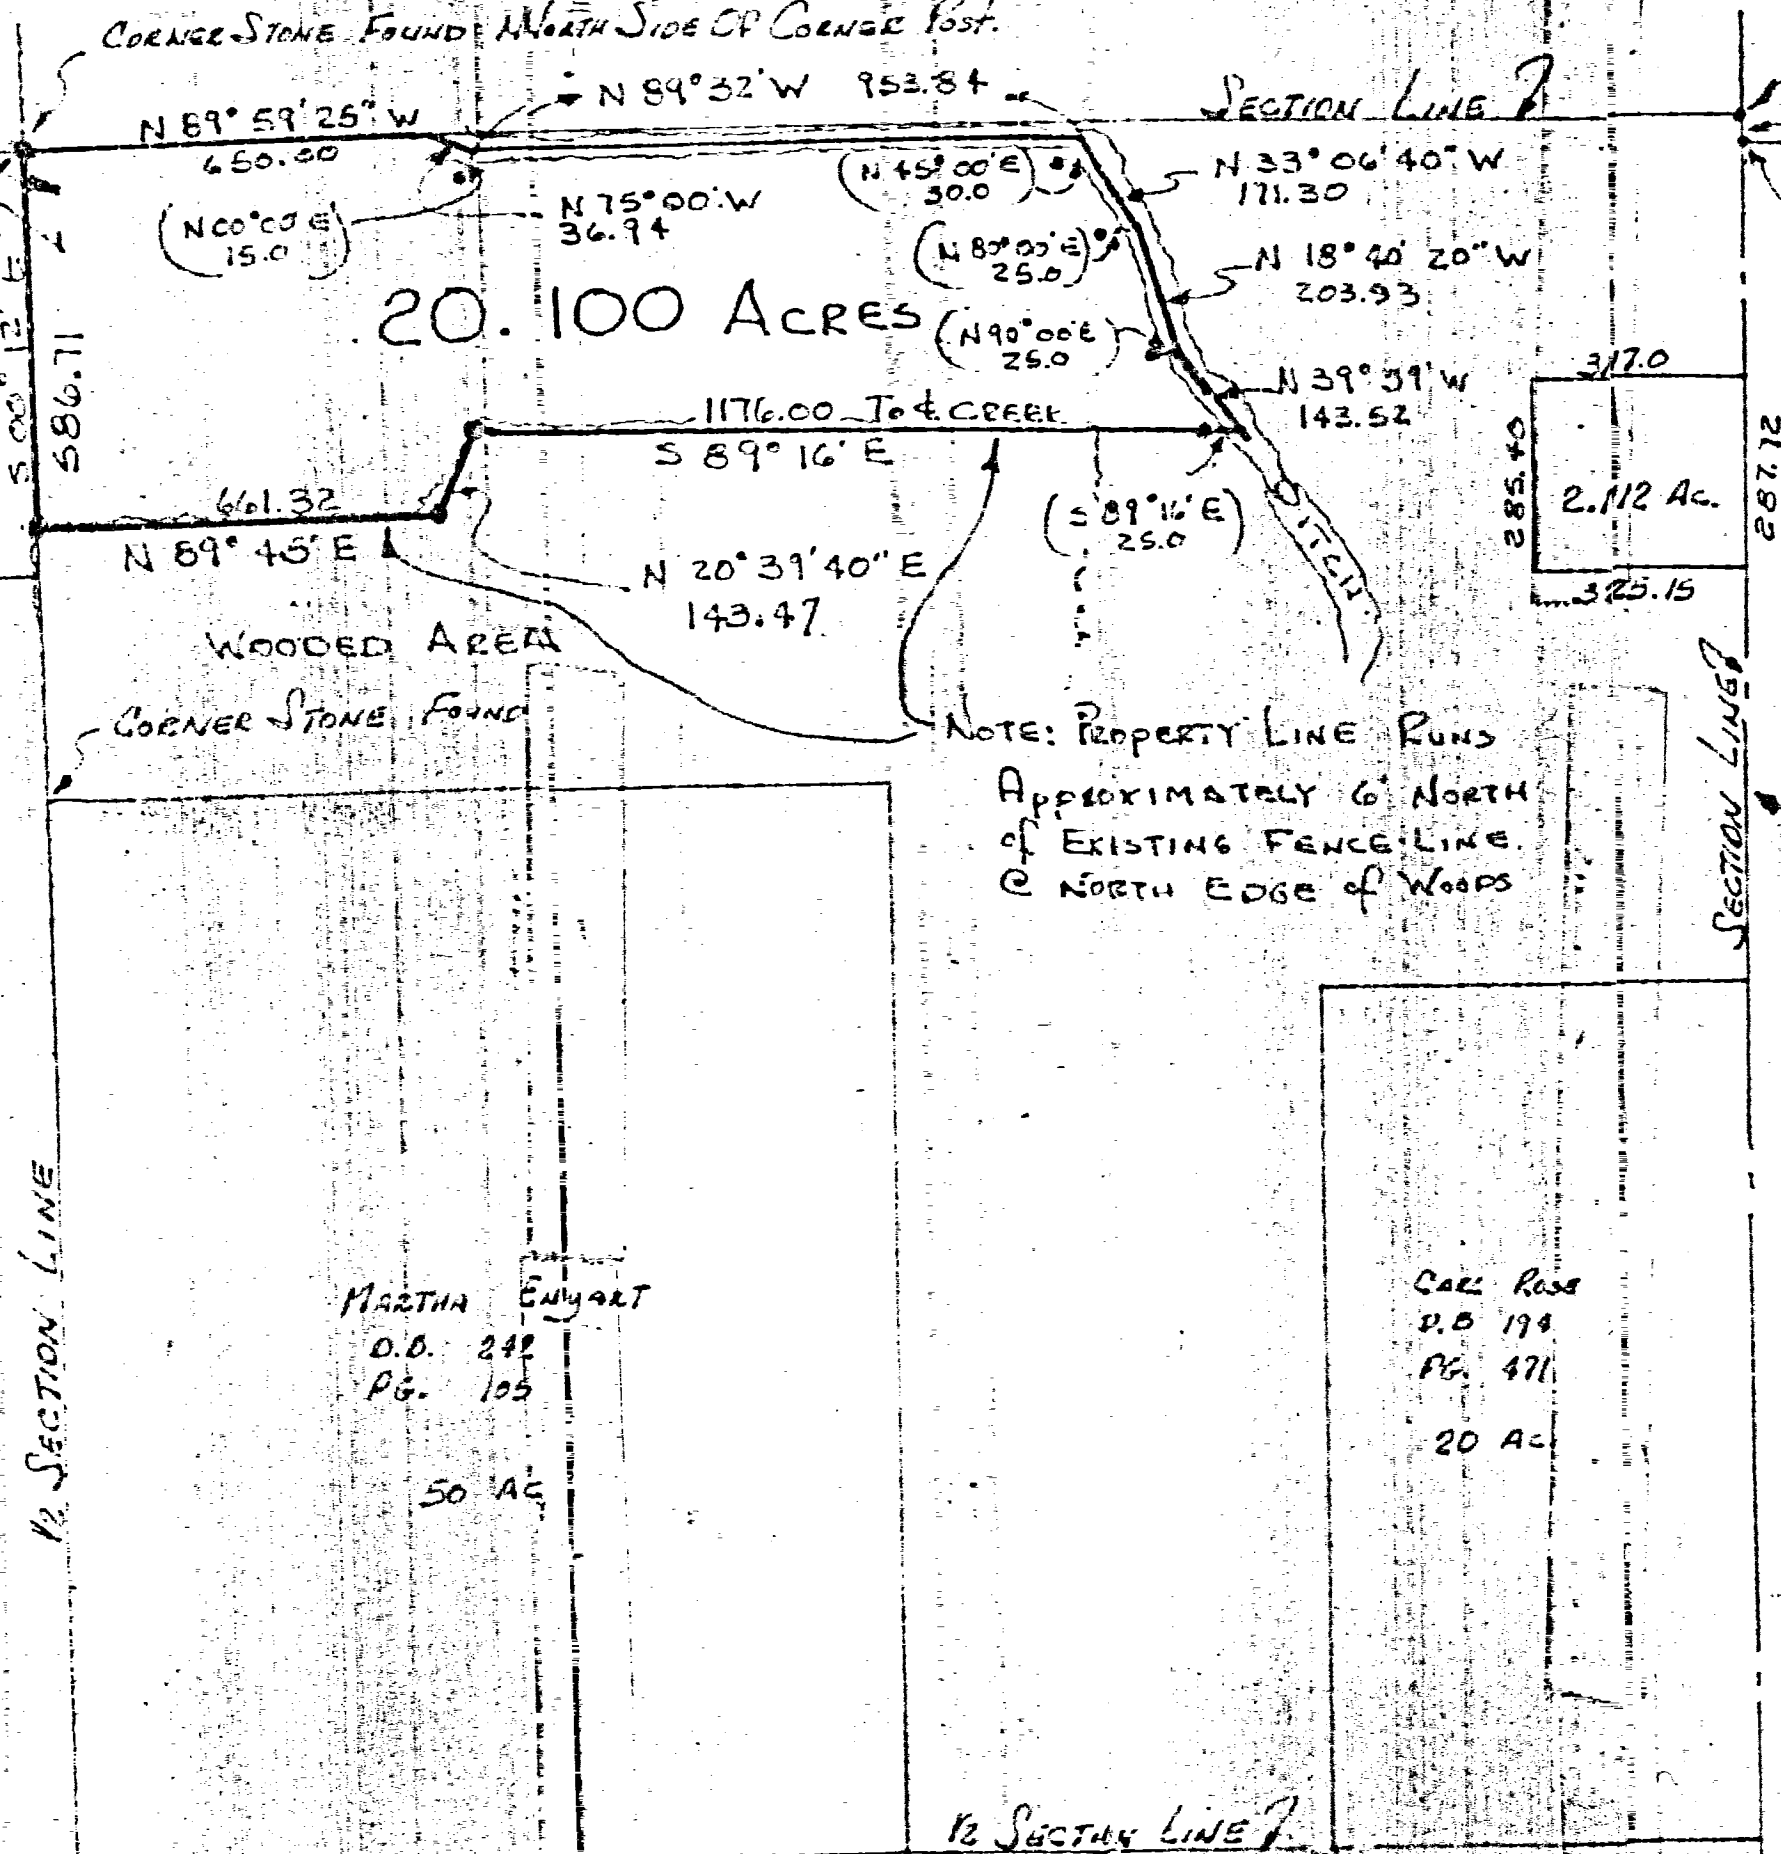 CORNER STONE FOUND NORTH SIDE OF CORNER POST.
N 89° 32' W 953.84
SECTION LINE ?
N 89° 59' 25" W
650.00
(N 00°00' E)
15.0
N 75°00' W
36.94
(N 45°00' E)
30.0
N 33° 06' 40" W
171.30
(N 80°00' E)
25.0
N 18° 40' 20" W
203.93
S 00° 12' E
586.71
20.100 ACRES
(N 90°00' E)
25.0
N 39° 39' W
143.52
1176.00 To ℄ CREEK
S 89° 16' E
(S 89° 16' E)
25.0
DITCH
317.0
285.40
2.112 Ac.
287.12
325.15
661.32
N 89° 45' E
N 20° 39' 40" E
143.47
WOODED AREA
CORNER STONE FOUND
NOTE: PROPERTY LINE RUNS
APPROXIMATELY 6' NORTH
of EXISTING FENCE LINE
@ NORTH EDGE of WOODS
SECTION LINE ?
1/2 SECTION LINE
MARTHA ENYART
D.B. 242
PG. 105
50 AC
CARL ROSE
D.B 194
PG. 471
20 AC
1/2 SECTION LINE ?